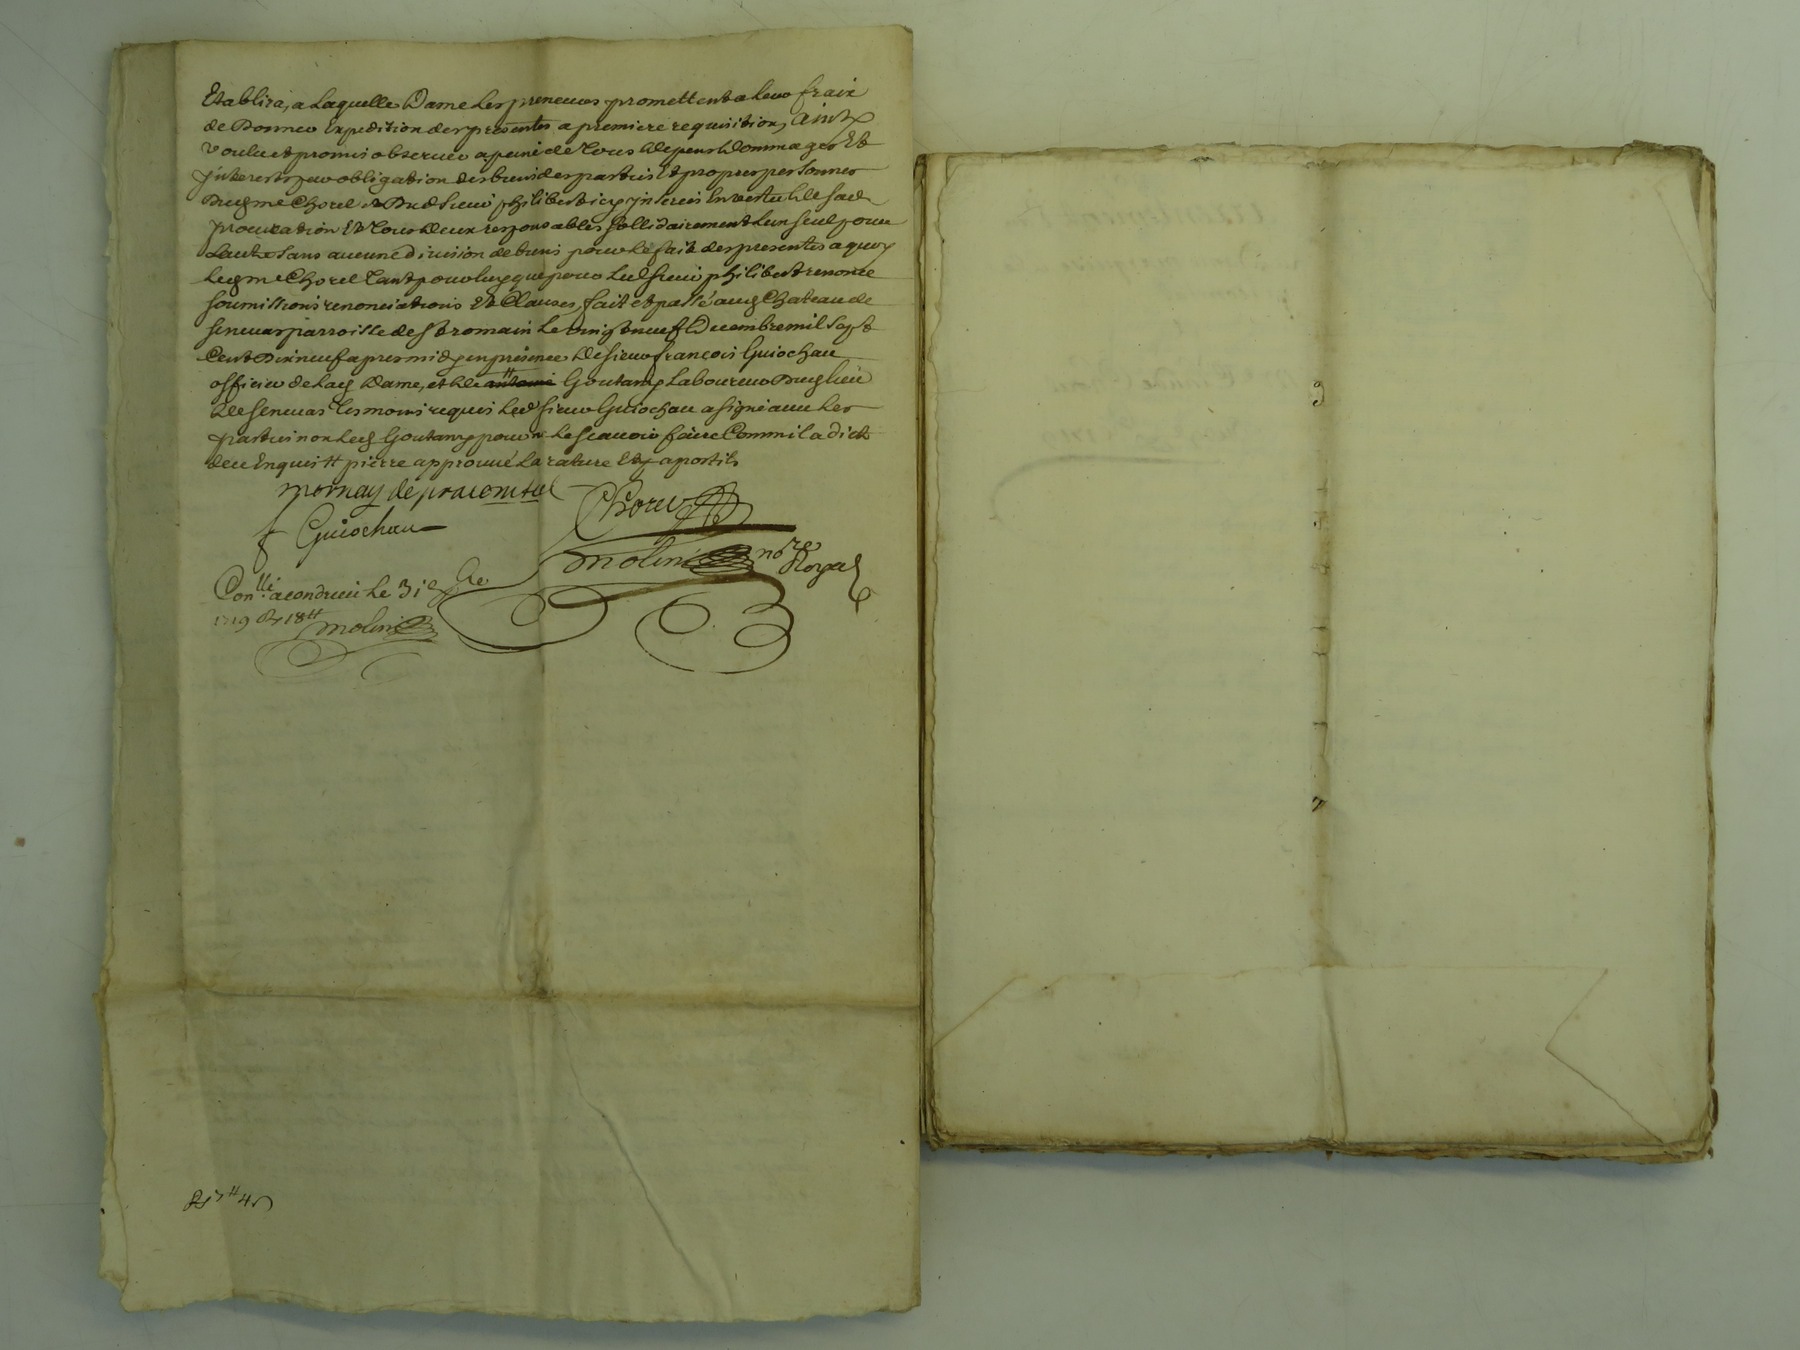 Etablira, a Laquelle Dame Les preneurs promettent a Leur fraix
de Donner Expedition des presentes a premiere requisition, Ainsy
voulu et promis observer a peine de Tous depens Dommages Et
Interests par obligation des biens des parties Et propres personnes
Dud me Chorel & Dud Sieur philibert icy Inseréé En vertu de sad
procuration Et Tous deux responsables Sollidairement Lun seul pour
Lautre sans aucune division de biens pour Le fait des presentes a quoy
Led me Chorel Tant pour luy que pour Led sieur philibert renonce
soumissions renonciations Et Clauses, fait et passé aud Chateau de
senevas parroisse de St romain Le vingt neuf Decembre mil sept
Cent Dix neuf apres midy en presence de sieur françois Guiochau
officier de Lad Dame, et de antoine Goutany Laboureur Dud lieu
de senevas Tesmoins requis Led sieur Guiochau a signé avec Les
parties non Led Goutany pour ne Le scavoir faire Comm il a dict
deu Enquis # pierre approuvé La rature Et apostils
mornay de pracomtal Chorel
f Guiochau
molin nore Royal
Conllé a condrieu Le 31e xbre
1719 R 18tt
molin